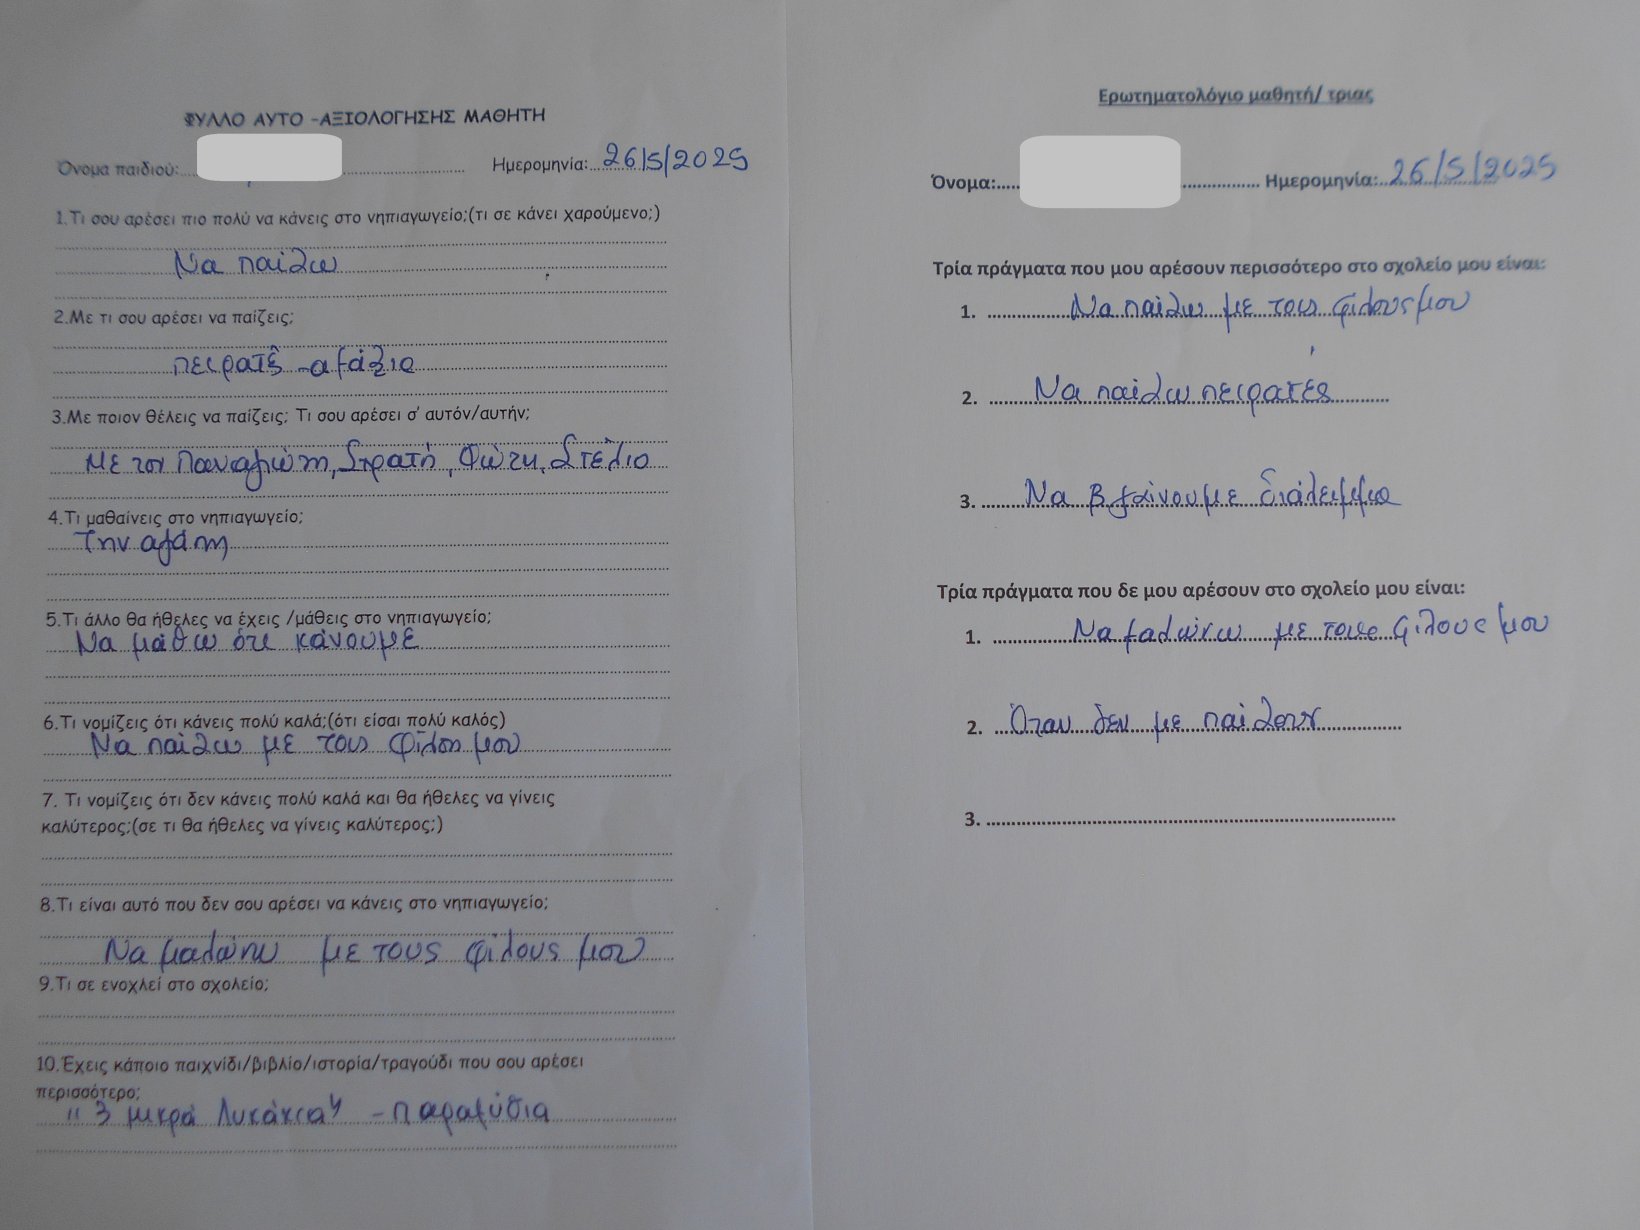 ΦΥΛΛΟ ΑΥΤΟ -ΑΞΙΟΛΟΓΗΣΗΣ ΜΑΘΗΤΗ
Όνομα παιδιού: Ημερομηνία: 26/5/2025
1.Τι σου αρέσει πιο πολύ να κάνεις στο νηπιαγωγείο;(τι σε κάνει χαρούμενο;)
Να παίζω
2.Με τι σου αρέσει να παίζεις;
πειρατές -αμάξια
3.Με ποιον θέλεις να παίζεις; Τι σου αρέσει σ' αυτόν/αυτήν;
Με τον Παναγιώτη, Στρατή, Φώτη, Στέλιο
4.Τι μαθαίνεις στο νηπιαγωγείο;
Την αγάπη
5.Τι άλλο θα ήθελες να έχεις /μάθεις στο νηπιαγωγείο;
Να μάθω ότι κάνουμε
6.Τι νομίζεις ότι κάνεις πολύ καλά;(ότι είσαι πολύ καλός)
Να παίζω με τους φίλους μου
7. Τι νομίζεις ότι δεν κάνεις πολύ καλά και θα ήθελες να γίνεις
καλύτερος;(σε τι θα ήθελες να γίνεις καλύτερος;)
8.Τι είναι αυτό που δεν σου αρέσει να κάνεις στο νηπιαγωγείο;
Να μαλώνω με τους φίλους μου
9.Τι σε ενοχλεί στο σχολείο;
10.Έχεις κάποιο παιχνίδι/βιβλίο/ιστορία/τραγούδι που σου αρέσει
περισσότερο;
"3 μικρά Λυκάκια" - παραμύθια
Ερωτηματολόγιο μαθητή/ τριας
Όνομα: Ημερομηνία: 26/5/2025
Τρία πράγματα που μου αρέσουν περισσότερο στο σχολείο μου είναι:
1. Να παίζω με τους φίλους μου
2. Να παίζω πειρατές
3. Να βγαίνουμε διάλειμμα
Τρία πράγματα που δε μου αρέσουν στο σχολείο μου είναι:
1. Να μαλώνω με τους φίλους μου
2. Όταν δεν με παίζουν
3.